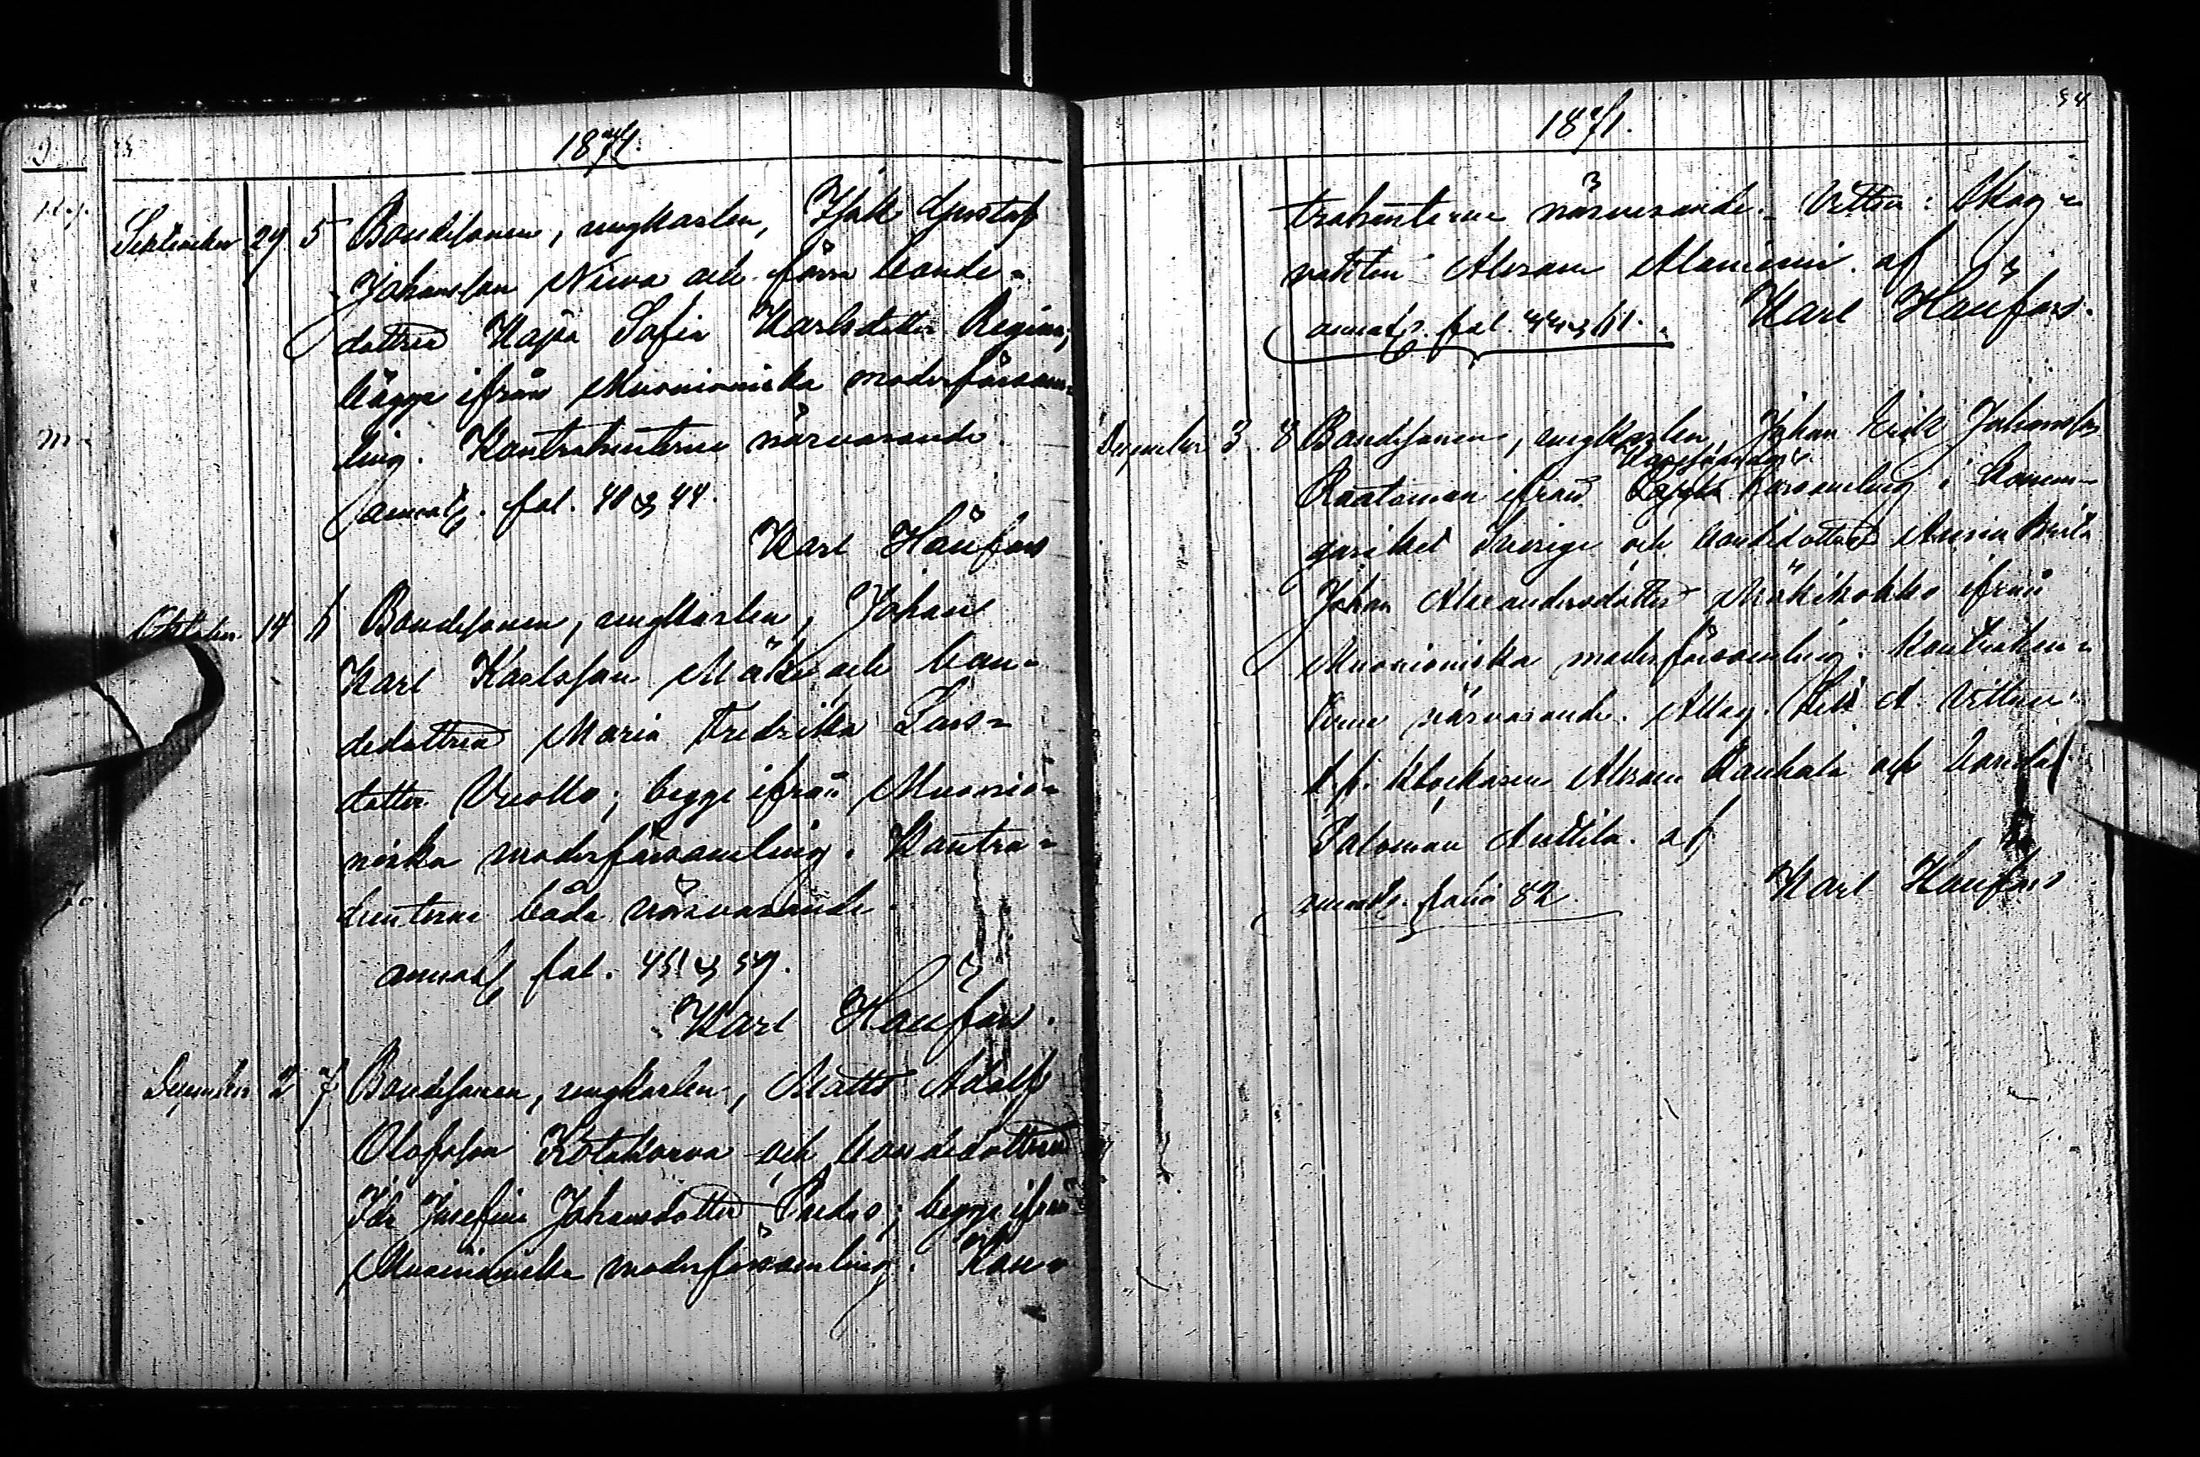 1871.
September 29 5 Bondesonen, ungkarlen, Isak Gustaf
Johansson Niva och förra bonde-
dottren Kajsa Sofia Karlsdotter Regina,
bägge ifrån Muonioniska moderförsam-
ling. Kontrahenterna närvarande.
annot. fol. 40 & 44.
Karl Hänfors
Oktober 14 6 Bondesonen, ungkarlen, Johan
Karl Karlsson Mäki och bon-
dedottren Maria Fredrika Lars-
dotter Vuollo; begge ifrån Muonio-
niska moderförsamling. Kontra-
henterna båda närvarande
annot. fol. 451 & 549.
Karl Hänfors.
December 2 7 Bondesonen, ungkarlen, Matts Adolf
Olofsson Kötekorva och bondedottren
Ida Josefina Johansdotter; begge ifrån
Muonioniska moderförsamling. Kon-
54
1871.
trahenterna närvarande. Vittne: Skog-
vakten Abram Alaniemi. af
annot. fol. Karl Hänfors.
December 3. 8 Bondesonen, ungkarlen, Johan Erik Johansson
Raatamaa ifrån församling i konun-
gariket Sverige och bondedottren Anna Brita
Johan Alexandersdotter Mäkikokko ifrån
Muonioniska moderförsamling. Kontrahen-
terna närvarande. Vittnen:
klockaren Abram Kauhala och bonden
Salomon Anttila. af
annot. folio 82. Karl Hänfors